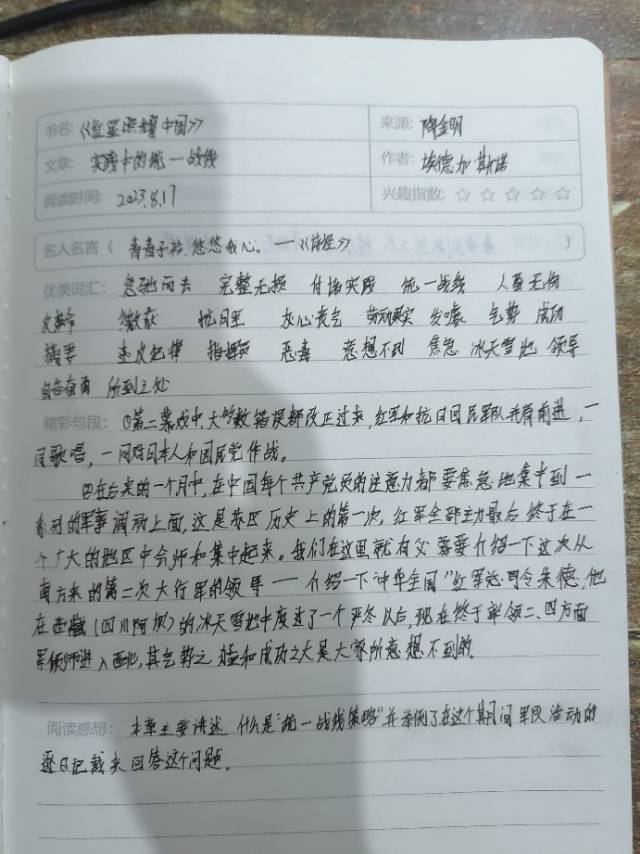 书名:《红星照耀中国》 来源: 陶金明
文章: 实践中的统一战线 作者: 埃德加·斯诺
阅读时间: 2023.8.17 兴趣指数: ☆ ☆ ☆ ☆ ☆
名人名言 ( 青青子衿,悠悠我心。 —《诗经》 )
优美词汇: 急驰而去 完整无损 付诸实践 统一战线 人畜无伤
反革命 缴获 抗日军 灰心丧气 劳动果实 发嚎 气势 成功
摘要 违反纪律 指挥员 恶毒 意想不到 焦急 冰天雪地 领导
自告奋勇 所到之处
精彩句段: ①第二幕戏中,大多数错误都改正过来,红军和抗日回民军队并肩前进,一
同歌唱,一同对日本人和国民党作战。
②在后来的一个月中,在中国每个共产党员的注意力都要焦急地集中到一
系列的军事调动上面,这是苏区历史上的第一次,红军全部主力最后终于在一
个广大的地区中会师和集中起来。我们在这里就有必要介绍一下这次从
南方来的第二次大行军的领导——介绍一下"中华全国"红军总司令朱德,他
在西藏(四川阿坝)的冰天雪地中度过了一个严冬以后,现在终于率领二、四方面
军倾师进入西北,其气势之雄和成功之大是大家所意想不到的.
阅读感想: 本章主要讲述什么是"统一战线策略"并举例了在这个期间军民活动的
逐日记载来回答这个问题。